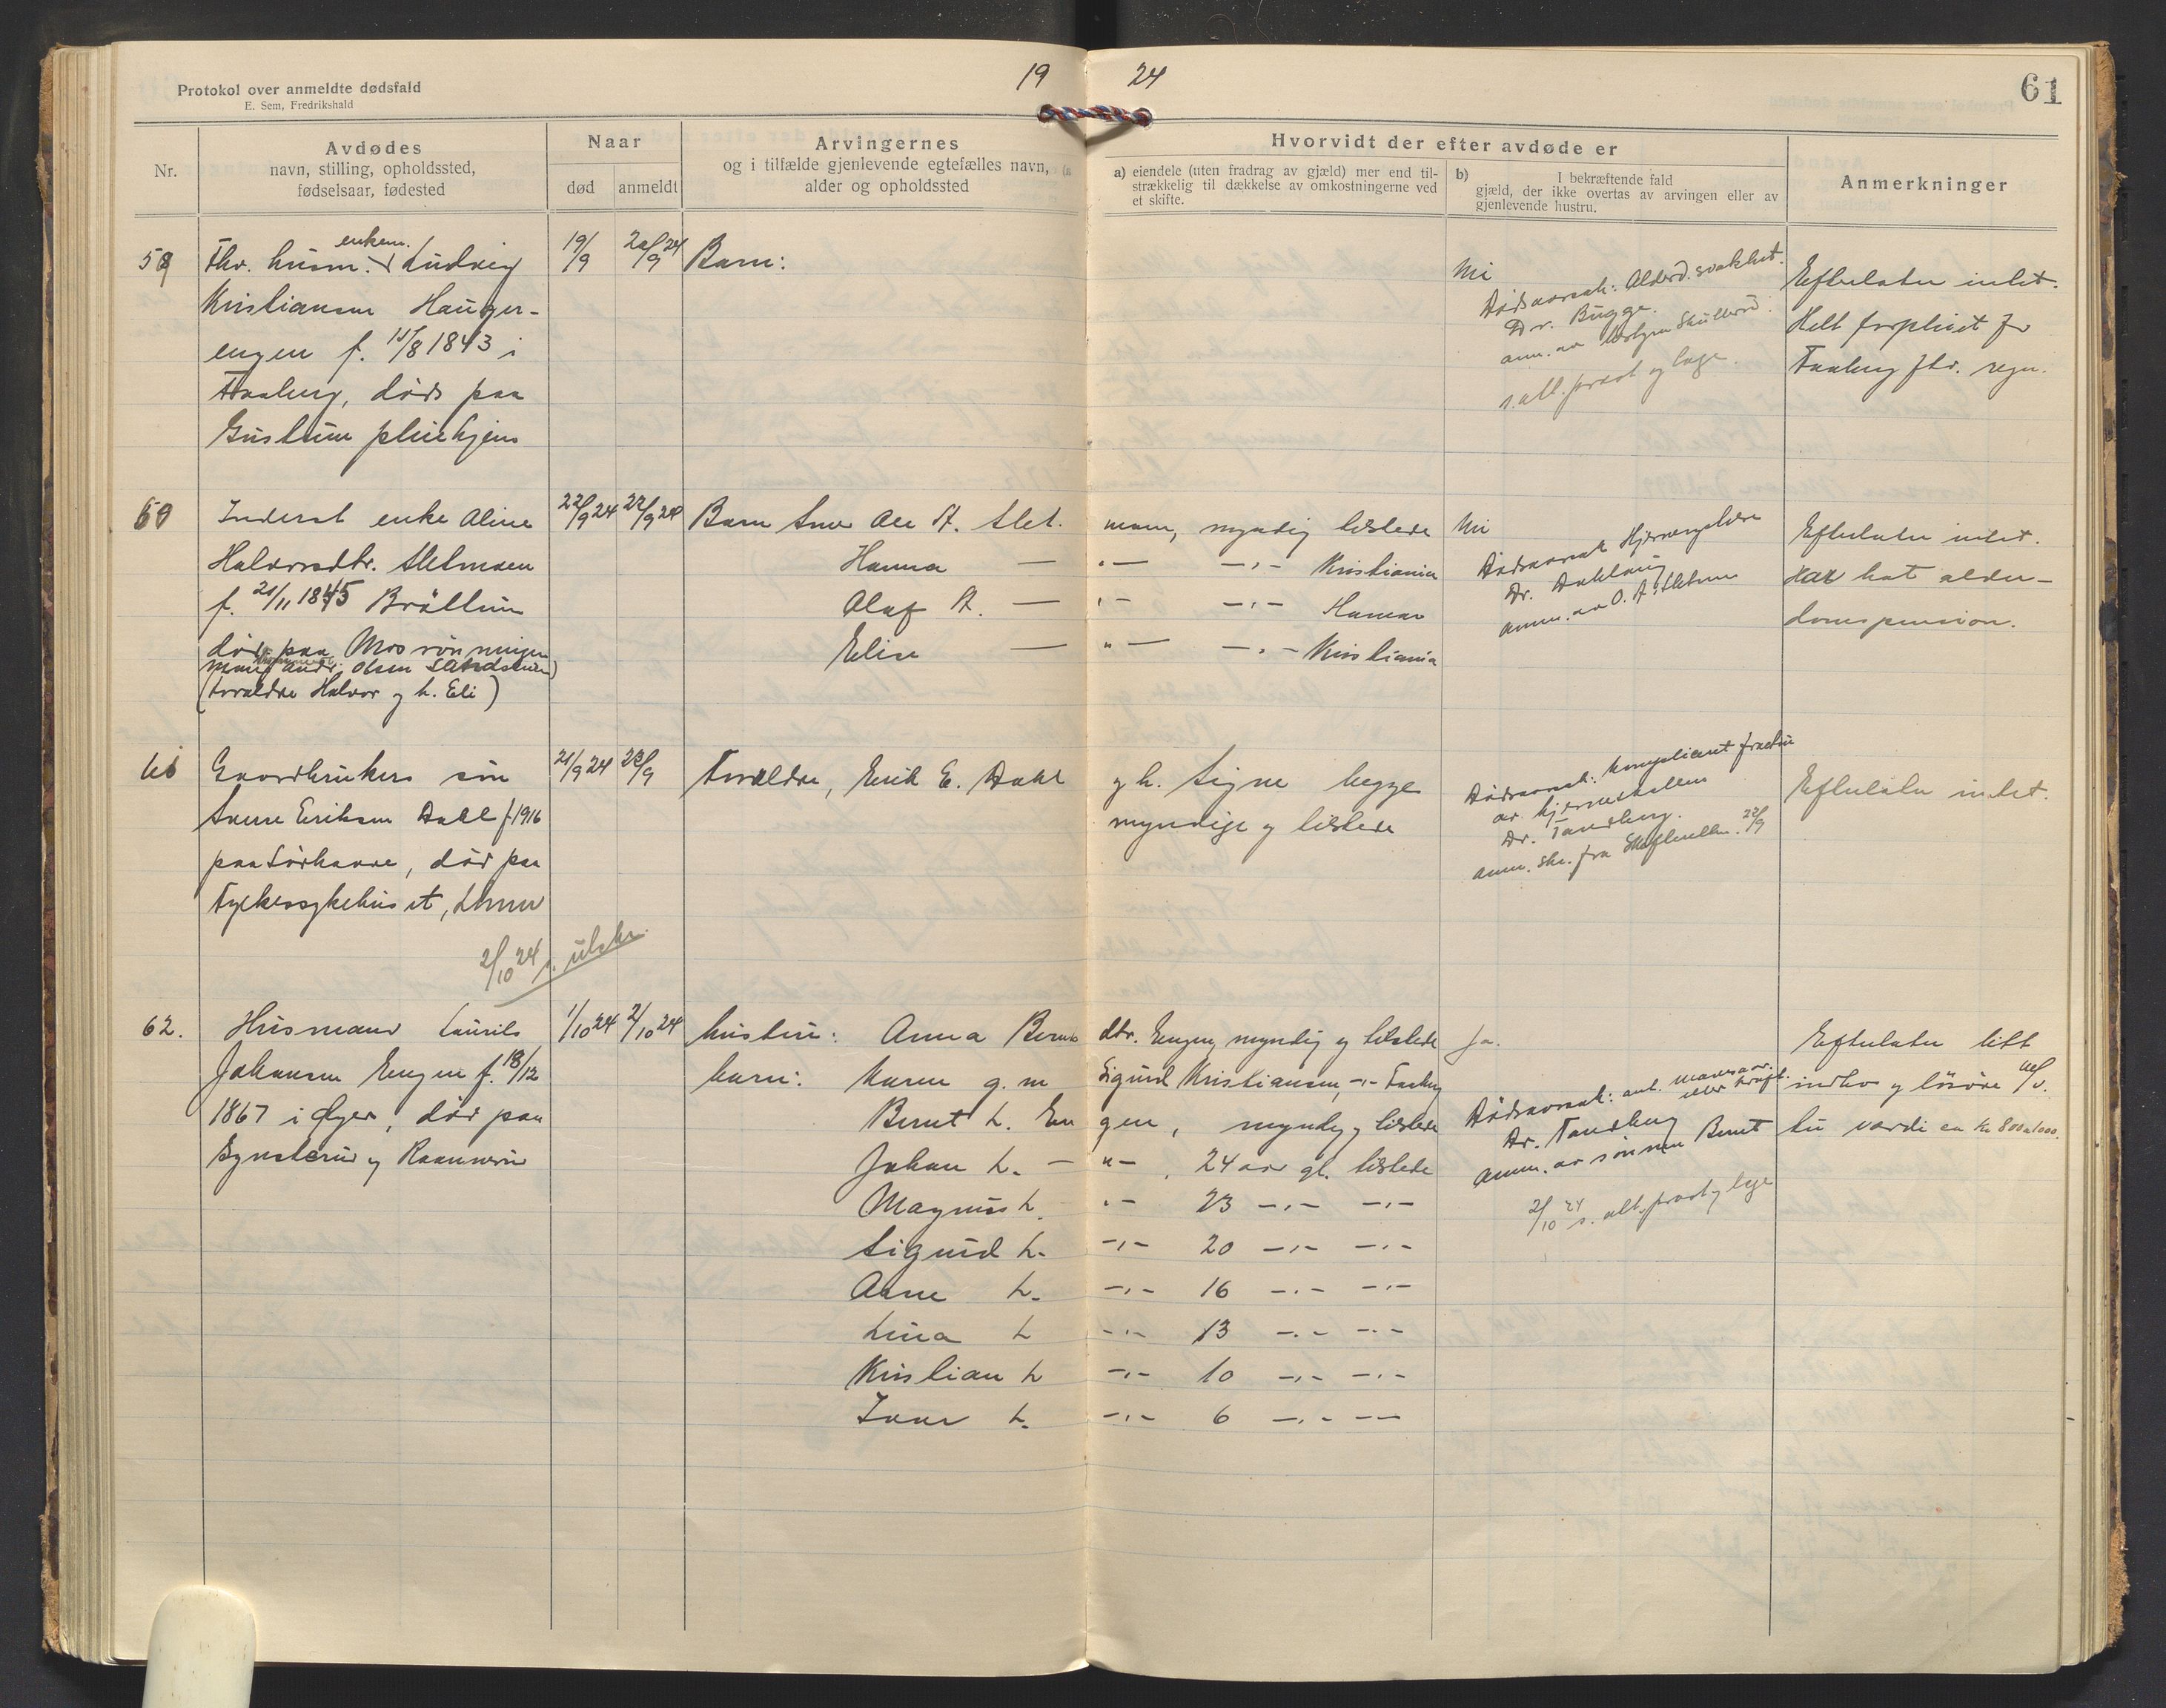 19 24
61
Protokol over anmeldte dødsfald
E. Sem, Fredrikshald
Nr.
Avdødes
navn, stilling, opholdssted,
fødselsaar, fødested
Naar
død anmeldt
Arvingernes
og i tilfælde gjenlevende egtefælles navn,
alder og opholdssted
Hvorvidt der efter avdøde er
a) eiendele (uten fradrag av gjæld) mer end til-
strækkelig til dækkelse av omkostningerne ved
et skifte.
b) I bekræftende fald
gjæld, der ikke overtas av arvingen eller av
gjenlevende hustru.
Anmerkninger
59
enkem.
Fhv. husm. Ludvig
Kristiansen Hauger-
engen f. 11/8 1843 i
Faaberg, død paa
Gustum pleiehjem
19/9
20/9 24
Barn:
Nei
Dødsaarsak: Alderd.svakhet.
Dr. Bugge.
anm. av
s. att. prest og læge.
Efterlater intet.
Helt forpleiet for
Faaberg ftv. regn.
60
Inderst enke Aline
Halvorsdtr. Sletmoen
f. 21/11 1845 Brøttum
død paa Mosrønningen
Olsen
(Foreldre Halvor og h. Eli)
22/9 24 22/9 24
Barn Snr Ole A. Slet. moen, myndig tilstede
Hanna — „— —„— Kristiania
Olaf A. — „— —„— Hamar
Elise — „— —„— Kristiania
Nei
Dødsaarsak Hjerneslag
Dr.
anm. av O. A. Sletmoen
Efterlater intet.
Har hat alder-
domspension.
61
Gaardbrukers søn
Sverre Eriksen Dahl f. 1916
paa Sørhovde, død paa
Fylkessykehuset, Lhmr
21/9 24 22/9
Foreldre, Erik E. Dahl og h. Signe begge
myndige og tilstede
Dødsaarsak: kompliceret fractur
av hjerneskallen
Dr. Tandberg.
anm. skr. fra 22/9
Efterlater intet.
2/10 24 s. utskr.
62.
Husmand Laurits
Johansen Engen f. 18/12
1867 i Øyer, død paa
Bynsterud og Raanerud
1/10 24 2/10 24
hustru: Anna Bernts dtr. Engen, myndig og tilstede
barn: Karen g. m. Sigurd Kristiansen, —„— Faaberg
Bernt L. Engen, myndig og tilstede
Johan L. — „— , 24 aar gl. tilstede
Magnus L. „— 23 —„— —„—
Sigurd L. —„— 20 —„— —„—
Arne L. —„— 16 —„— —„—
Lina L —„— 13 —„— —„—
Kristian L —„— 10 —„— —„—
Ivar L. —„— 6 —„— ——
Ja.
Dødsaarsak: ant. mavesaar.
eller kræft.
Dr. Tandberg
anm. av sønnen Bernt
2/10 24 s. att. prest og læge
Efterlater litt
indbo og løsøre
til værdi ca kr 800 a 1000.